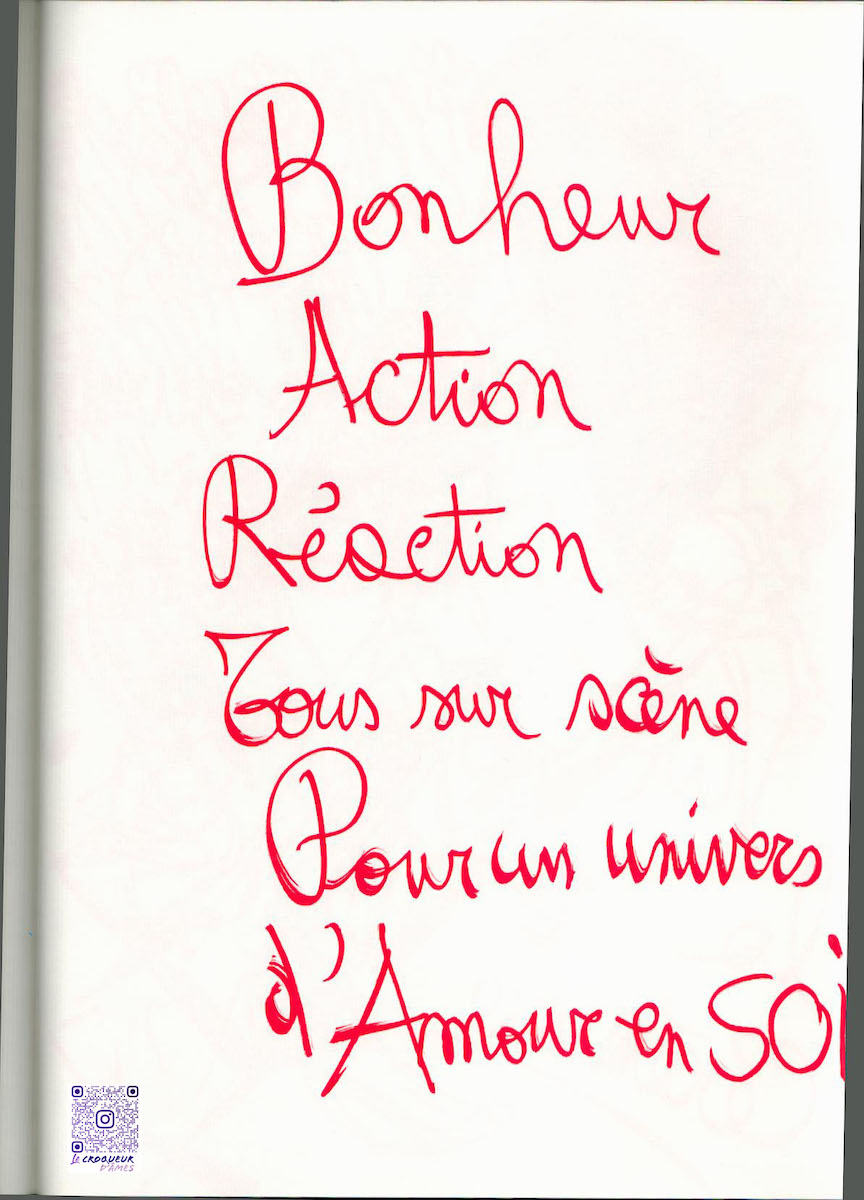 Bonheur
Action
Réaction
Tous sur scène
Pour un univers
d'Amour en SOi
Le CROQUEUR
D'ÂMES